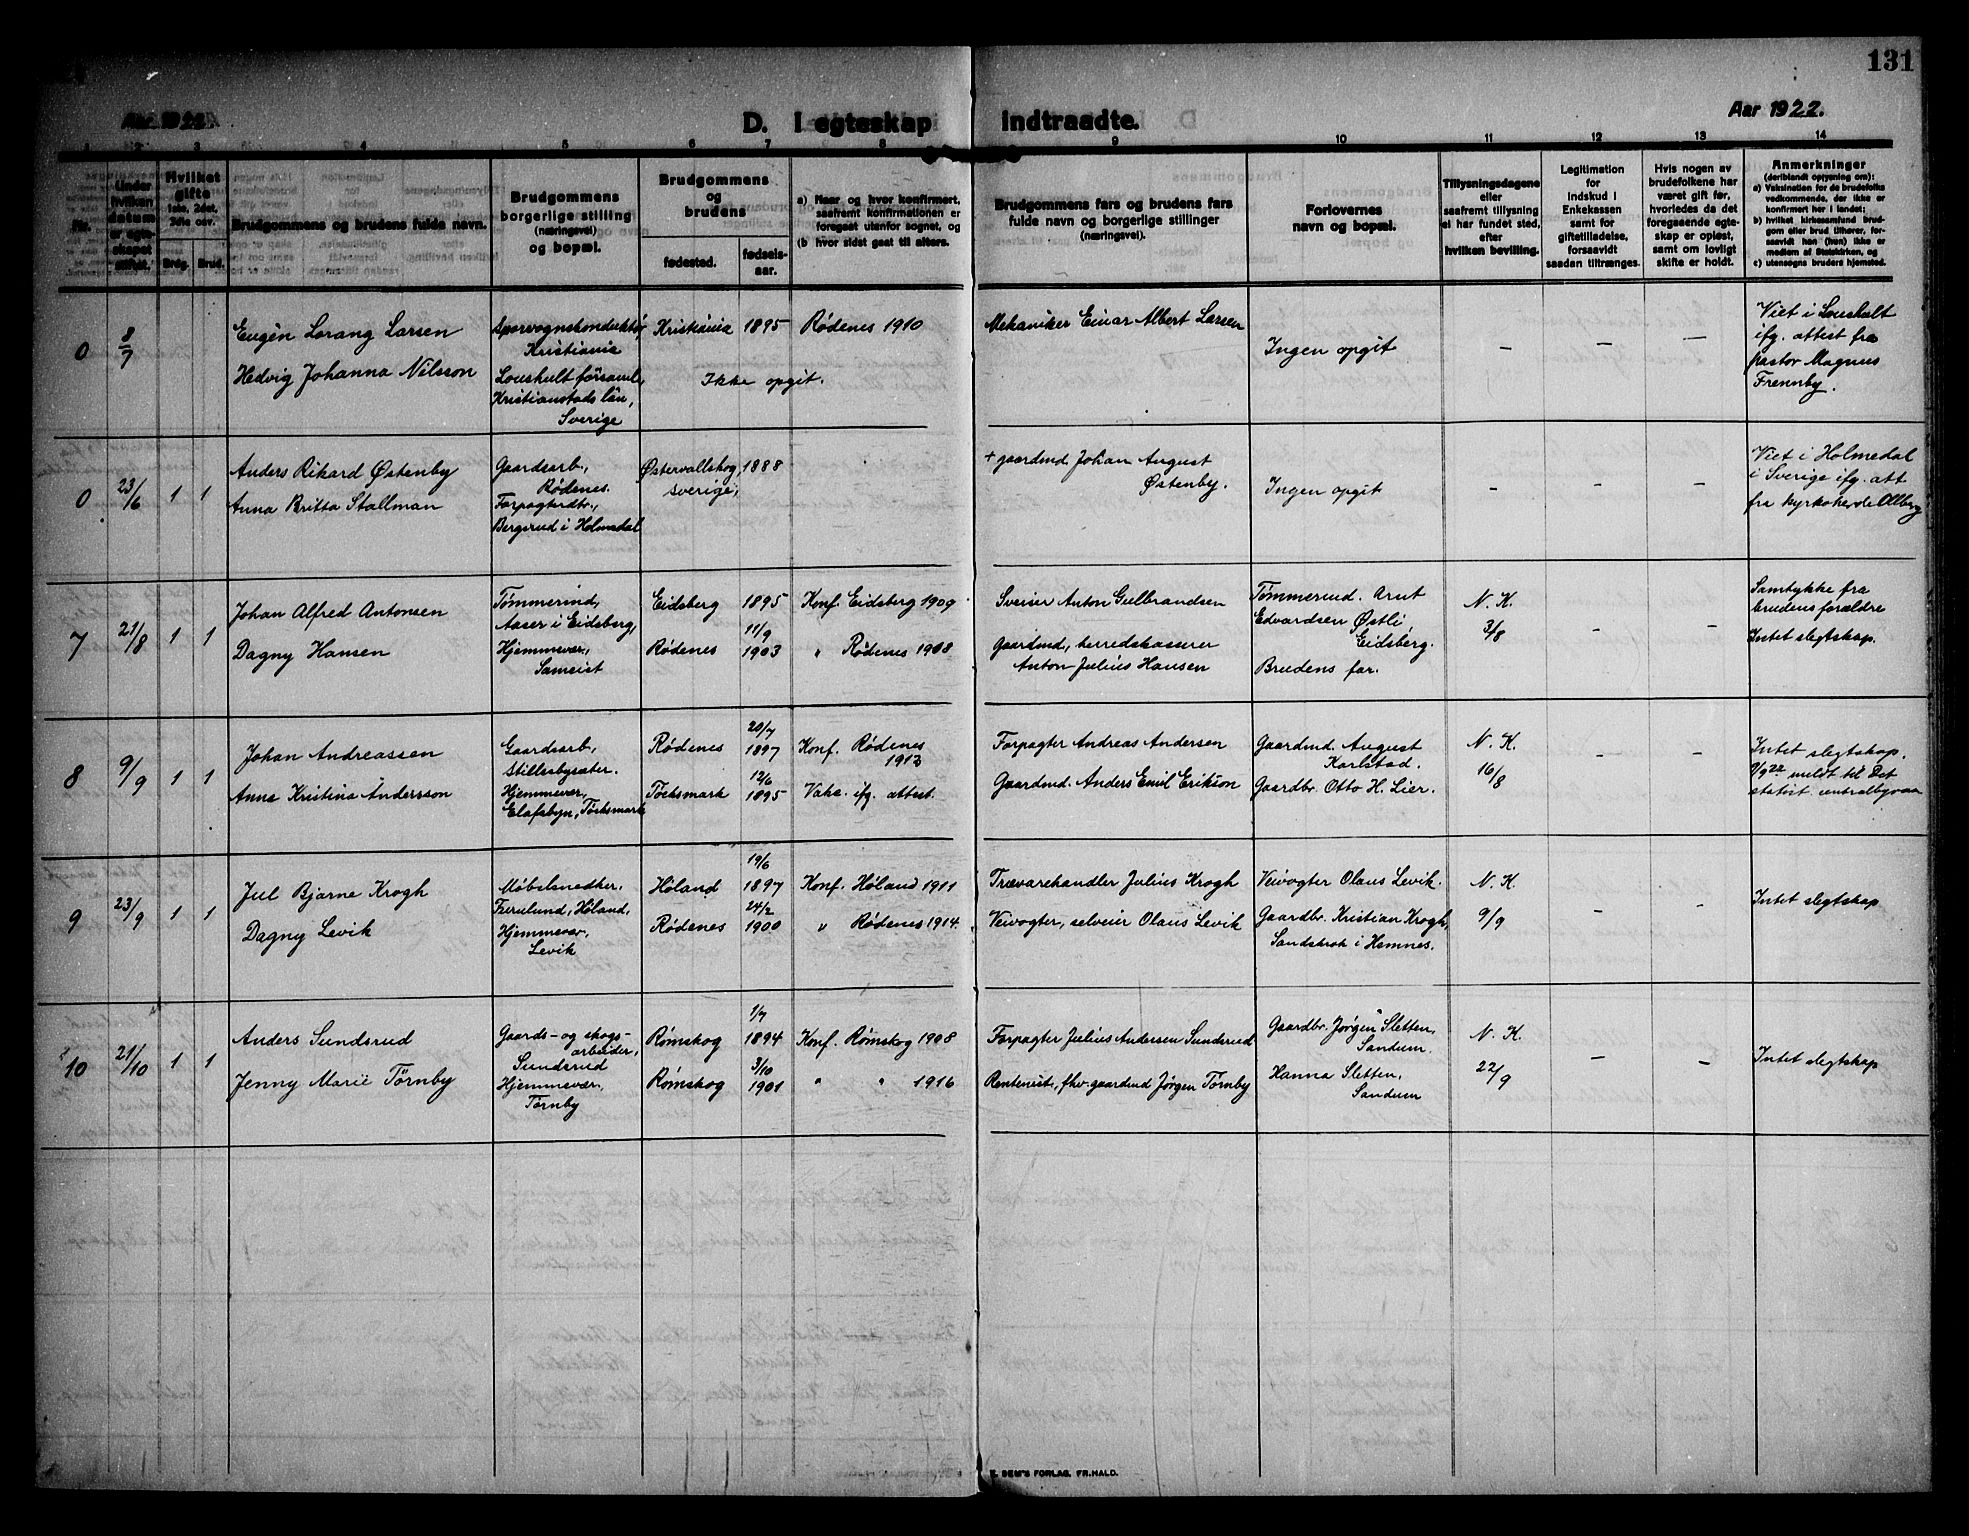 131
Aar 1922.
D. I egteskap indtraadte.
Aar 1922.
1 2 3 4 5 6 7 8 9 10 11 12 13 14
Nr.
Under hvilken datum er egteskapet stiftet.
Hvilket gifte 1ste, 2det, 3die osv.
Brdg. Brud.
Brudgommens og brudens fulde navn.
Brudgommens borgerlige stilling (næringsvei) og bopæl.
Brudgommens og brudens
fødested. fødsels-aar.
a) Naar og hvor konfirmert, saafremt konfirmationen er foregaat utenfor sognet, og
(b hvor sidst gaat til alters.
Brudgommens fars og brudens fars fulde navn og borgerlige stillinger (næringsvei).
Forlovernes navn og bopæl.
Tillysningsdagene eller saafremt tillysning ei har fundet sted, efter hvilken bevilling.
Legitimation for indskud i Enkekassen samt for giftetilladelse, forsaavidt saadan tiltrænges.
Hvis nogen av brudefolkene har været gift før, hvorledes da det foregaaende egteskap er opløst, samt om lovligt skifte er holdt.
Anmerkninger
(deriblandt oplysning om):
a) Vaksination for de brudefolks vedkommende, der ikke er konfirmert her i landet;
b) hvilket kirkesamfund brudgom eller brud tilhører, forsaavidt han (hun) ikke er medlem af Statskirken, og
c) utensogns bruders hjemsted.
0 8/7
Eugén Lorang Larsen
Hedvig Johanna Nilsson
Sporvognskonduktør,
Kristiania
Loushult församl.,
Kristianstads län,
Sverige
Kristiania 1895 Rødenes 1910
Ikke opgit.
Mekaniker Einar Albert Larsen
Ingen opgit
– – –
Viet i Loushult
ifg. attest fra
pastor Magnus
Frennby.
0 23/6 1 1
Anders Rikard Østenby
Anna Britta Stallman
Gaardsarb.,
Rødenes.
Forpagterdtr.,
Bergerud i Holmedal
Østervallskog, 1888
Sverige,
+ gaardmd. Johan August
Østenby.
Ingen opgit
– – –
Viet i Holmedal
i Sverige ifg. att
fra kyrkoherde Allberg
7 21/8 1 1
Johan Alfred Antonsen
Dagny Hansen
Tømmerind,
Aaser i Eidsberg,
Hjemmevær.,
Sameist
Eidsberg 1895 Konf. Eidsberg 1909
Rødenes 11/9 1903 " Rødenes 1908
Sveiser Anton Gulbrandsen
Gaardmd, herredskasserer
Anton Julius Hansen
Tømmerind. Arnt
Edvardsen Østli,
Eidsberg.
Brudens far.
N. K.
3/8
– –
Samtykke fra
brudens forældre
Intet slegtskap.
8 9/9 1 1
Johan Andreassen
Anna Kristina Andersson
Gaardsarb.,
Stillesbysæter.
Hjemmevær,
Elafsbyn, Töcksmark
Rødenes 20/7 1897 Konf. Rødenes
1913
Töcksmark 12/6 1895 Vaks. ifg. attest.
Forpagter Andreas Andersen
Gaardmd. Anders Emil Erikson
Gaardmd. August
Karlstad.
Gaardbr. Otto H. Lier.
N. K.
16/8
– –
Intet slegtskap.
9/9 22 meldt til Det
statist. centralbyraa
9 23/9 1 1
Jul Bjarne Krogh
Dagny Levik
Møbelsnedker,
Fierulund, Høland,
Hjemmevær,
Levik
Høland 19/6 1897 Konf. Høland 1911
Rødenes 24/2 1900 " Rødenes 1914.
Trævarehandler Julius Krogh
Veivogter, selveier Olaus Levik
Veivogter Olaus Levik.
Gaardbr. Kristian Krogh,
Sandskrok i Hemnes.
N. K.
9/9
– –
Intet slegtskap
10 21/10 1 1
Anders Sundsrud
Jenny Marie Törnby
Gaards- og skogs-
arbeider,
Sundsrud
Hjemmevær,
Törnby
Rømskog 1/7 1894 Konf. Rømskog 1908
Rømskog 3/10 1901 " " 1916
Forpagter Julius Andersen Sundsrud
Rentenist, fhv. gaardmd Jørgen Törnby
Gaardbr. Jørgen Sletten,
Sandum.
Hanna Sletten,
Sandum
N. K.
22/9
– –
Intet slegtskap
E. SEM'S FORLAG, FR.HALD.